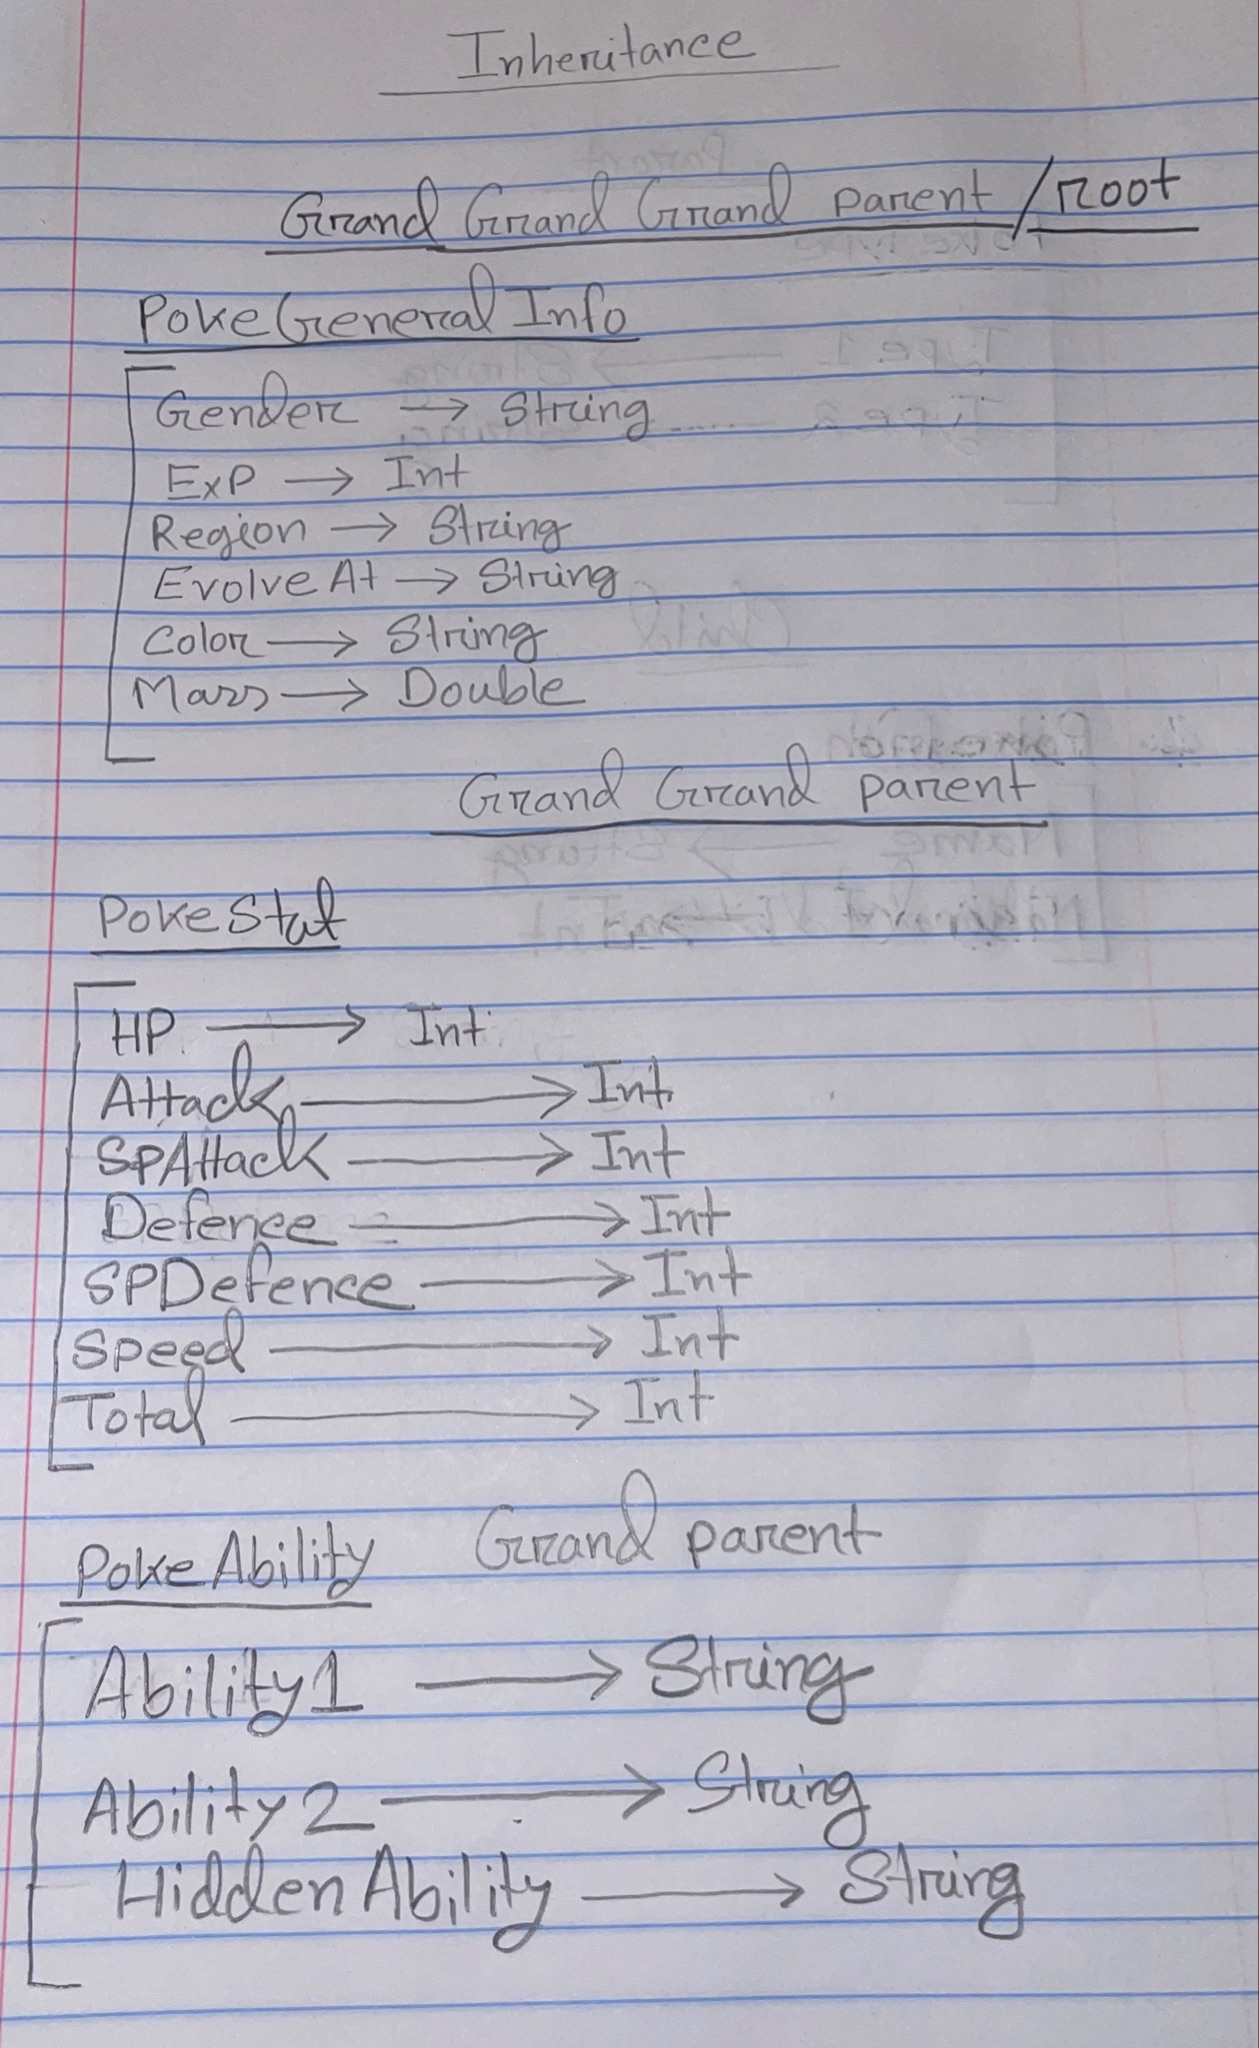 Inheritance
Grand Grand Grand parent / root
PokeGeneral Info
Gender → String
Exp → Int
Region → String
Evolve At → String
Color → String
Mass → Double
Grand Grand parent
Poke Stat
HP → Int
Attack → Int
SPAttack → Int
Defence → Int
SPDefence → Int
Speed → Int
Total → Int
Grand parent
Poke Ability
Ability1 → String
Ability2 → String
Hidden Ability → String